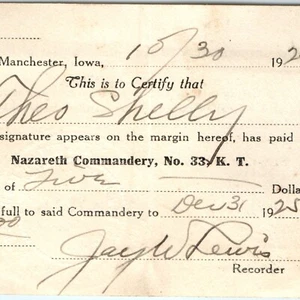 Manchester, Iowa, 10/30 192
This is to Certify that
Theo Shelly
signature appears on the margin hereof, has paid
Nazareth Commandery, No. 33, K. T.
of Five Dolla
full to said Commandery to Dec 31 1925
00
Jay W Lewis
Recorder